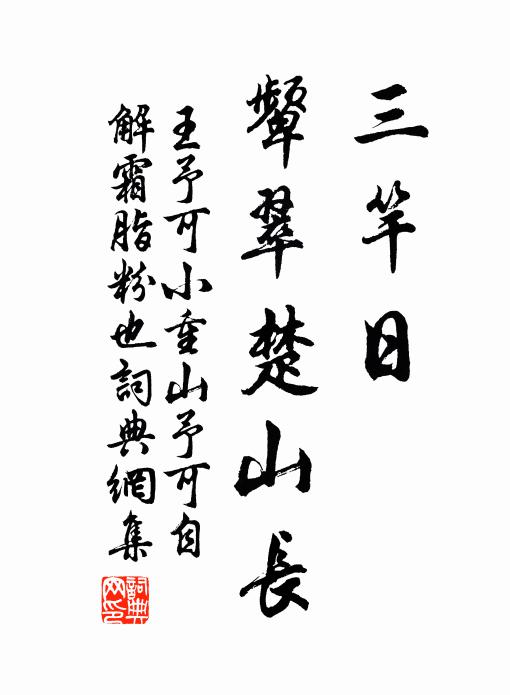 三竿日
顰翠楚山長
王予可小重山予可自
解霜脂粉也詞典網集
詞典網印